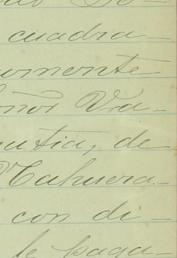 cuadra-
umente
ñor Va-
utia, de
Tahuera-
con di-
le paga-